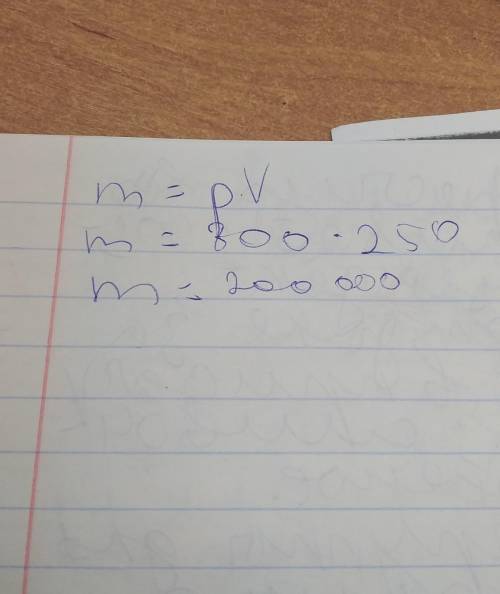 m = p·V
m = 800 · 250
m = 200 000